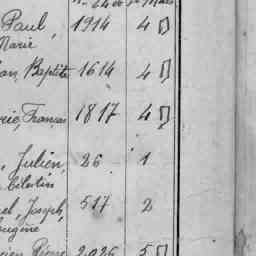 Paul, 1914 4
Marie
Baptiste 1614 4
François 1817 4
, Julien, 26 1
Célestin
, Joseph, 517 2
Eugène
Pierre 2026 5